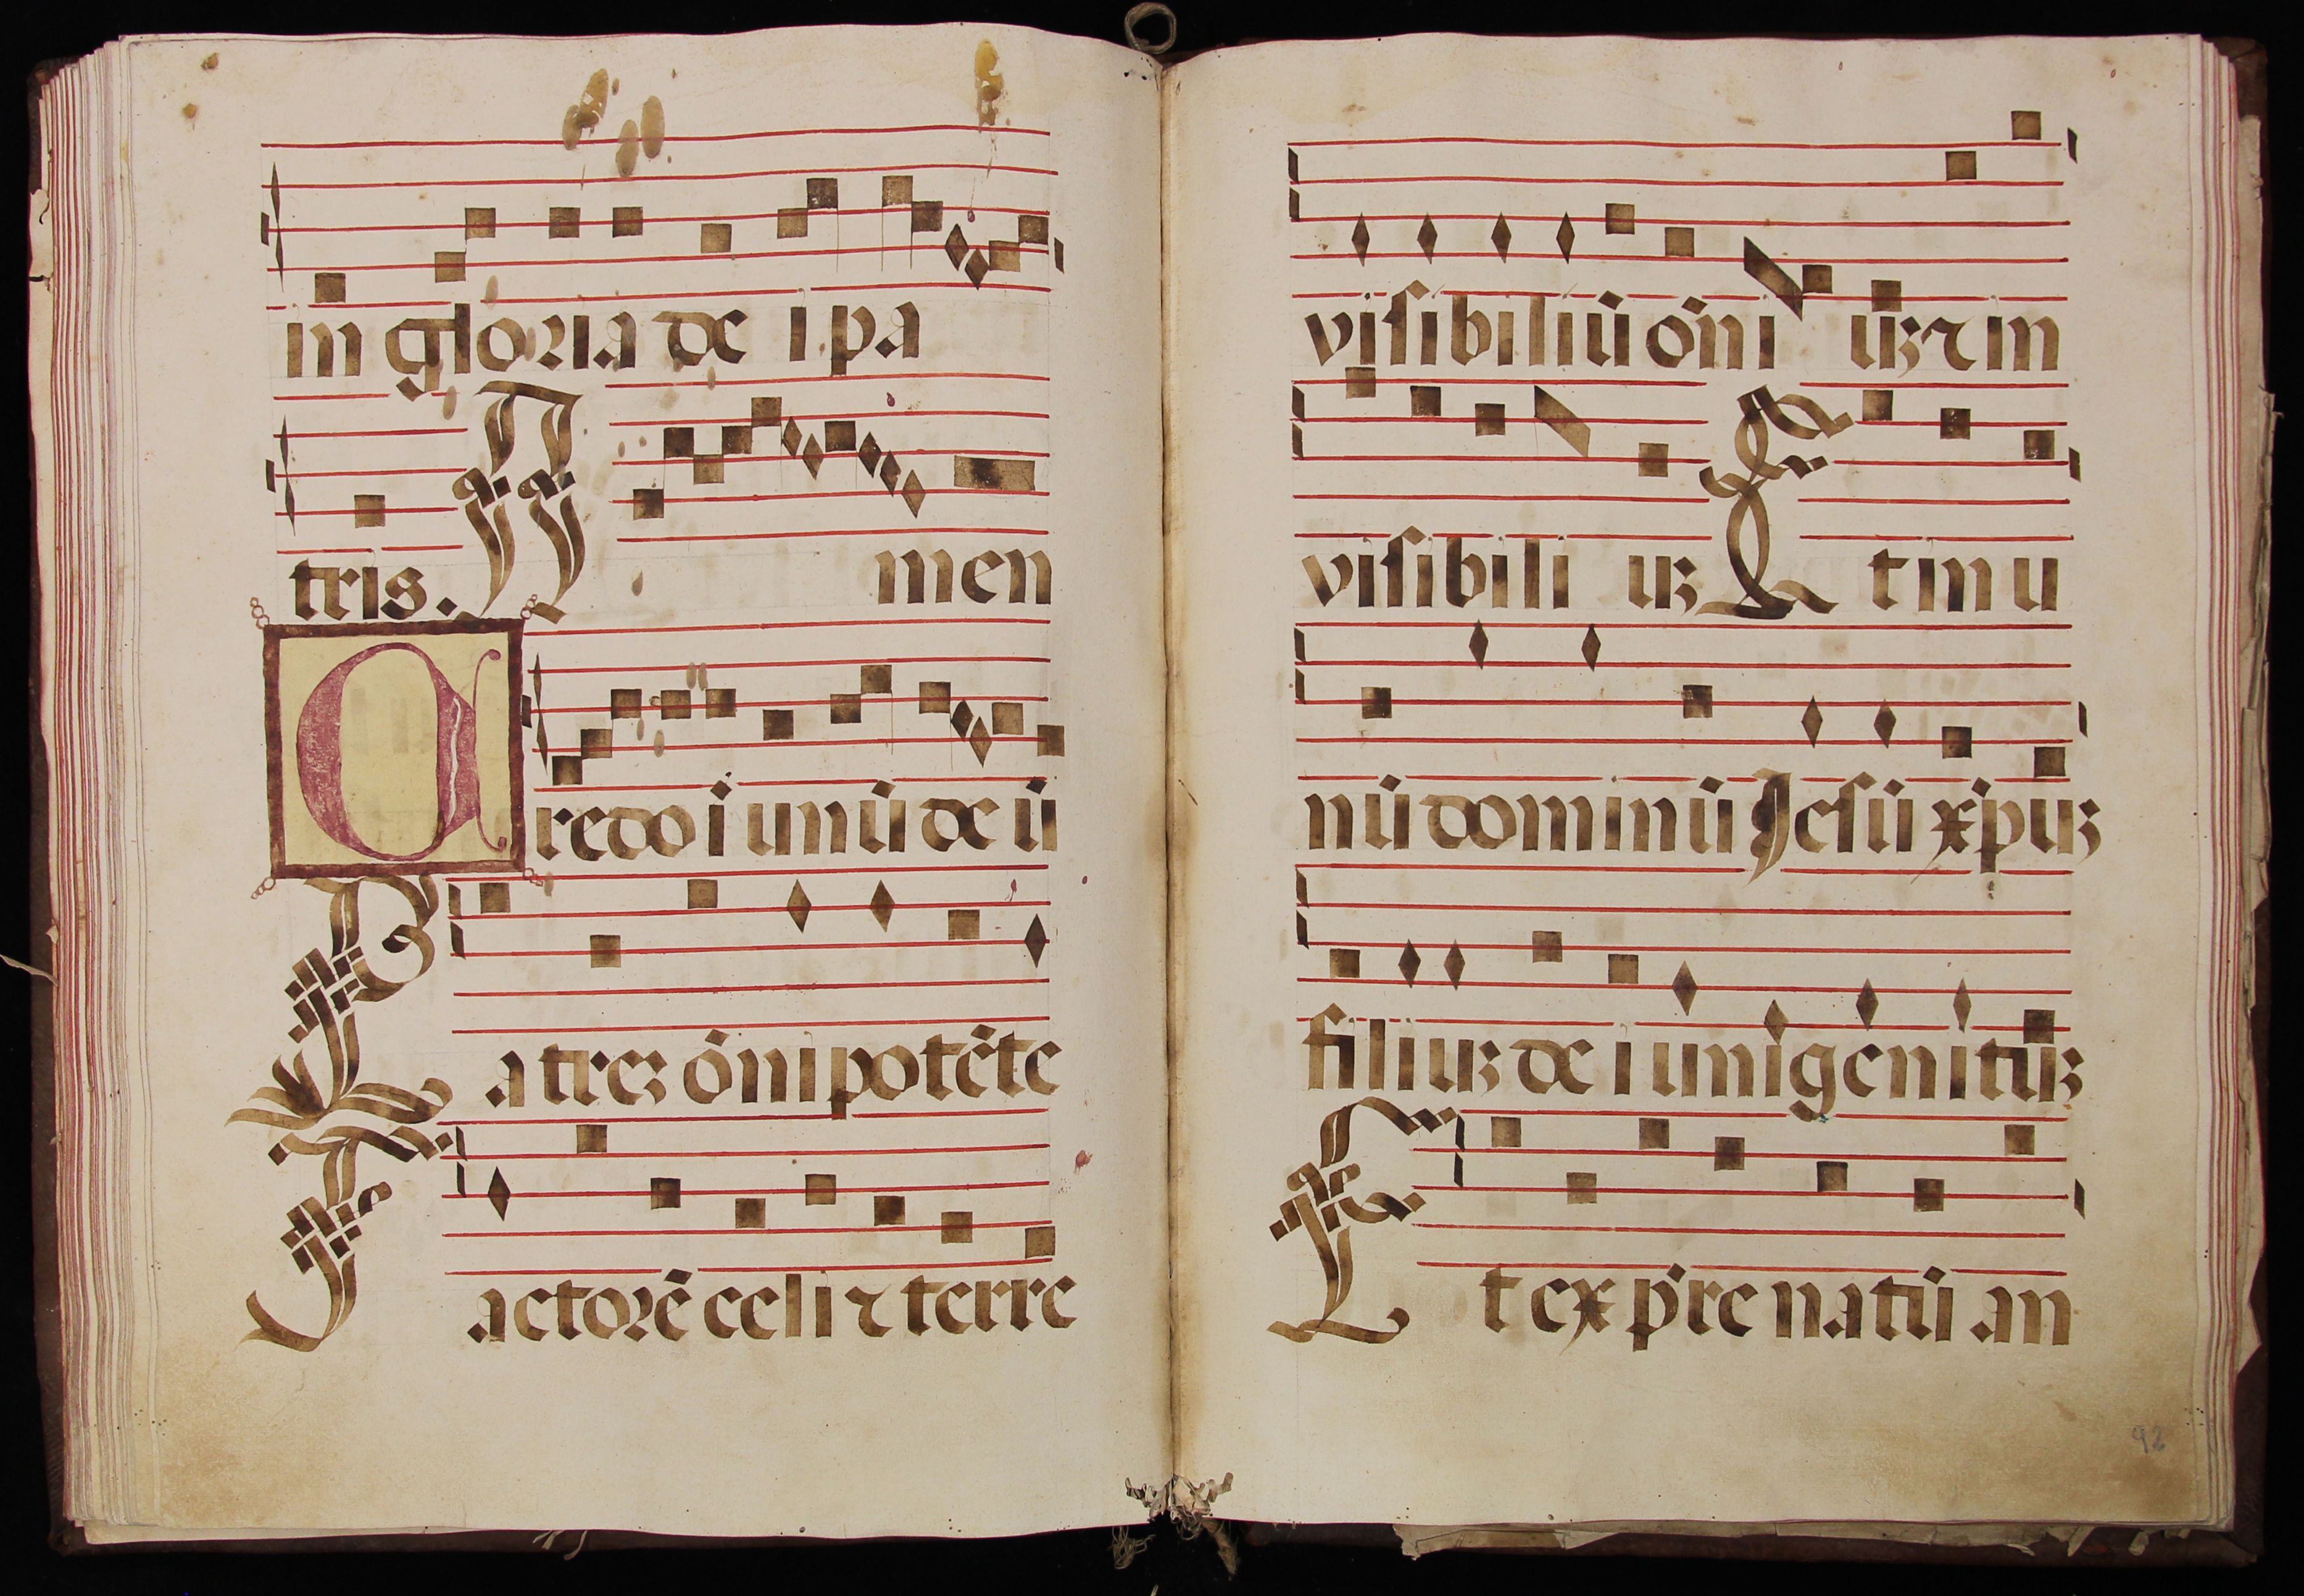 in gloria de i pa
tris. A men
Credo ī unū de ū
Patreꝫ ōnipotēte
Factorē celi ⁊ terre
visibiliū ōni uꝫ ⁊ in
visibili uꝫ Et in u
nū dominū Jesū xp̄uꝫ
filiuꝫ de i unigenituꝫ
Et ex p̄re natū an
92